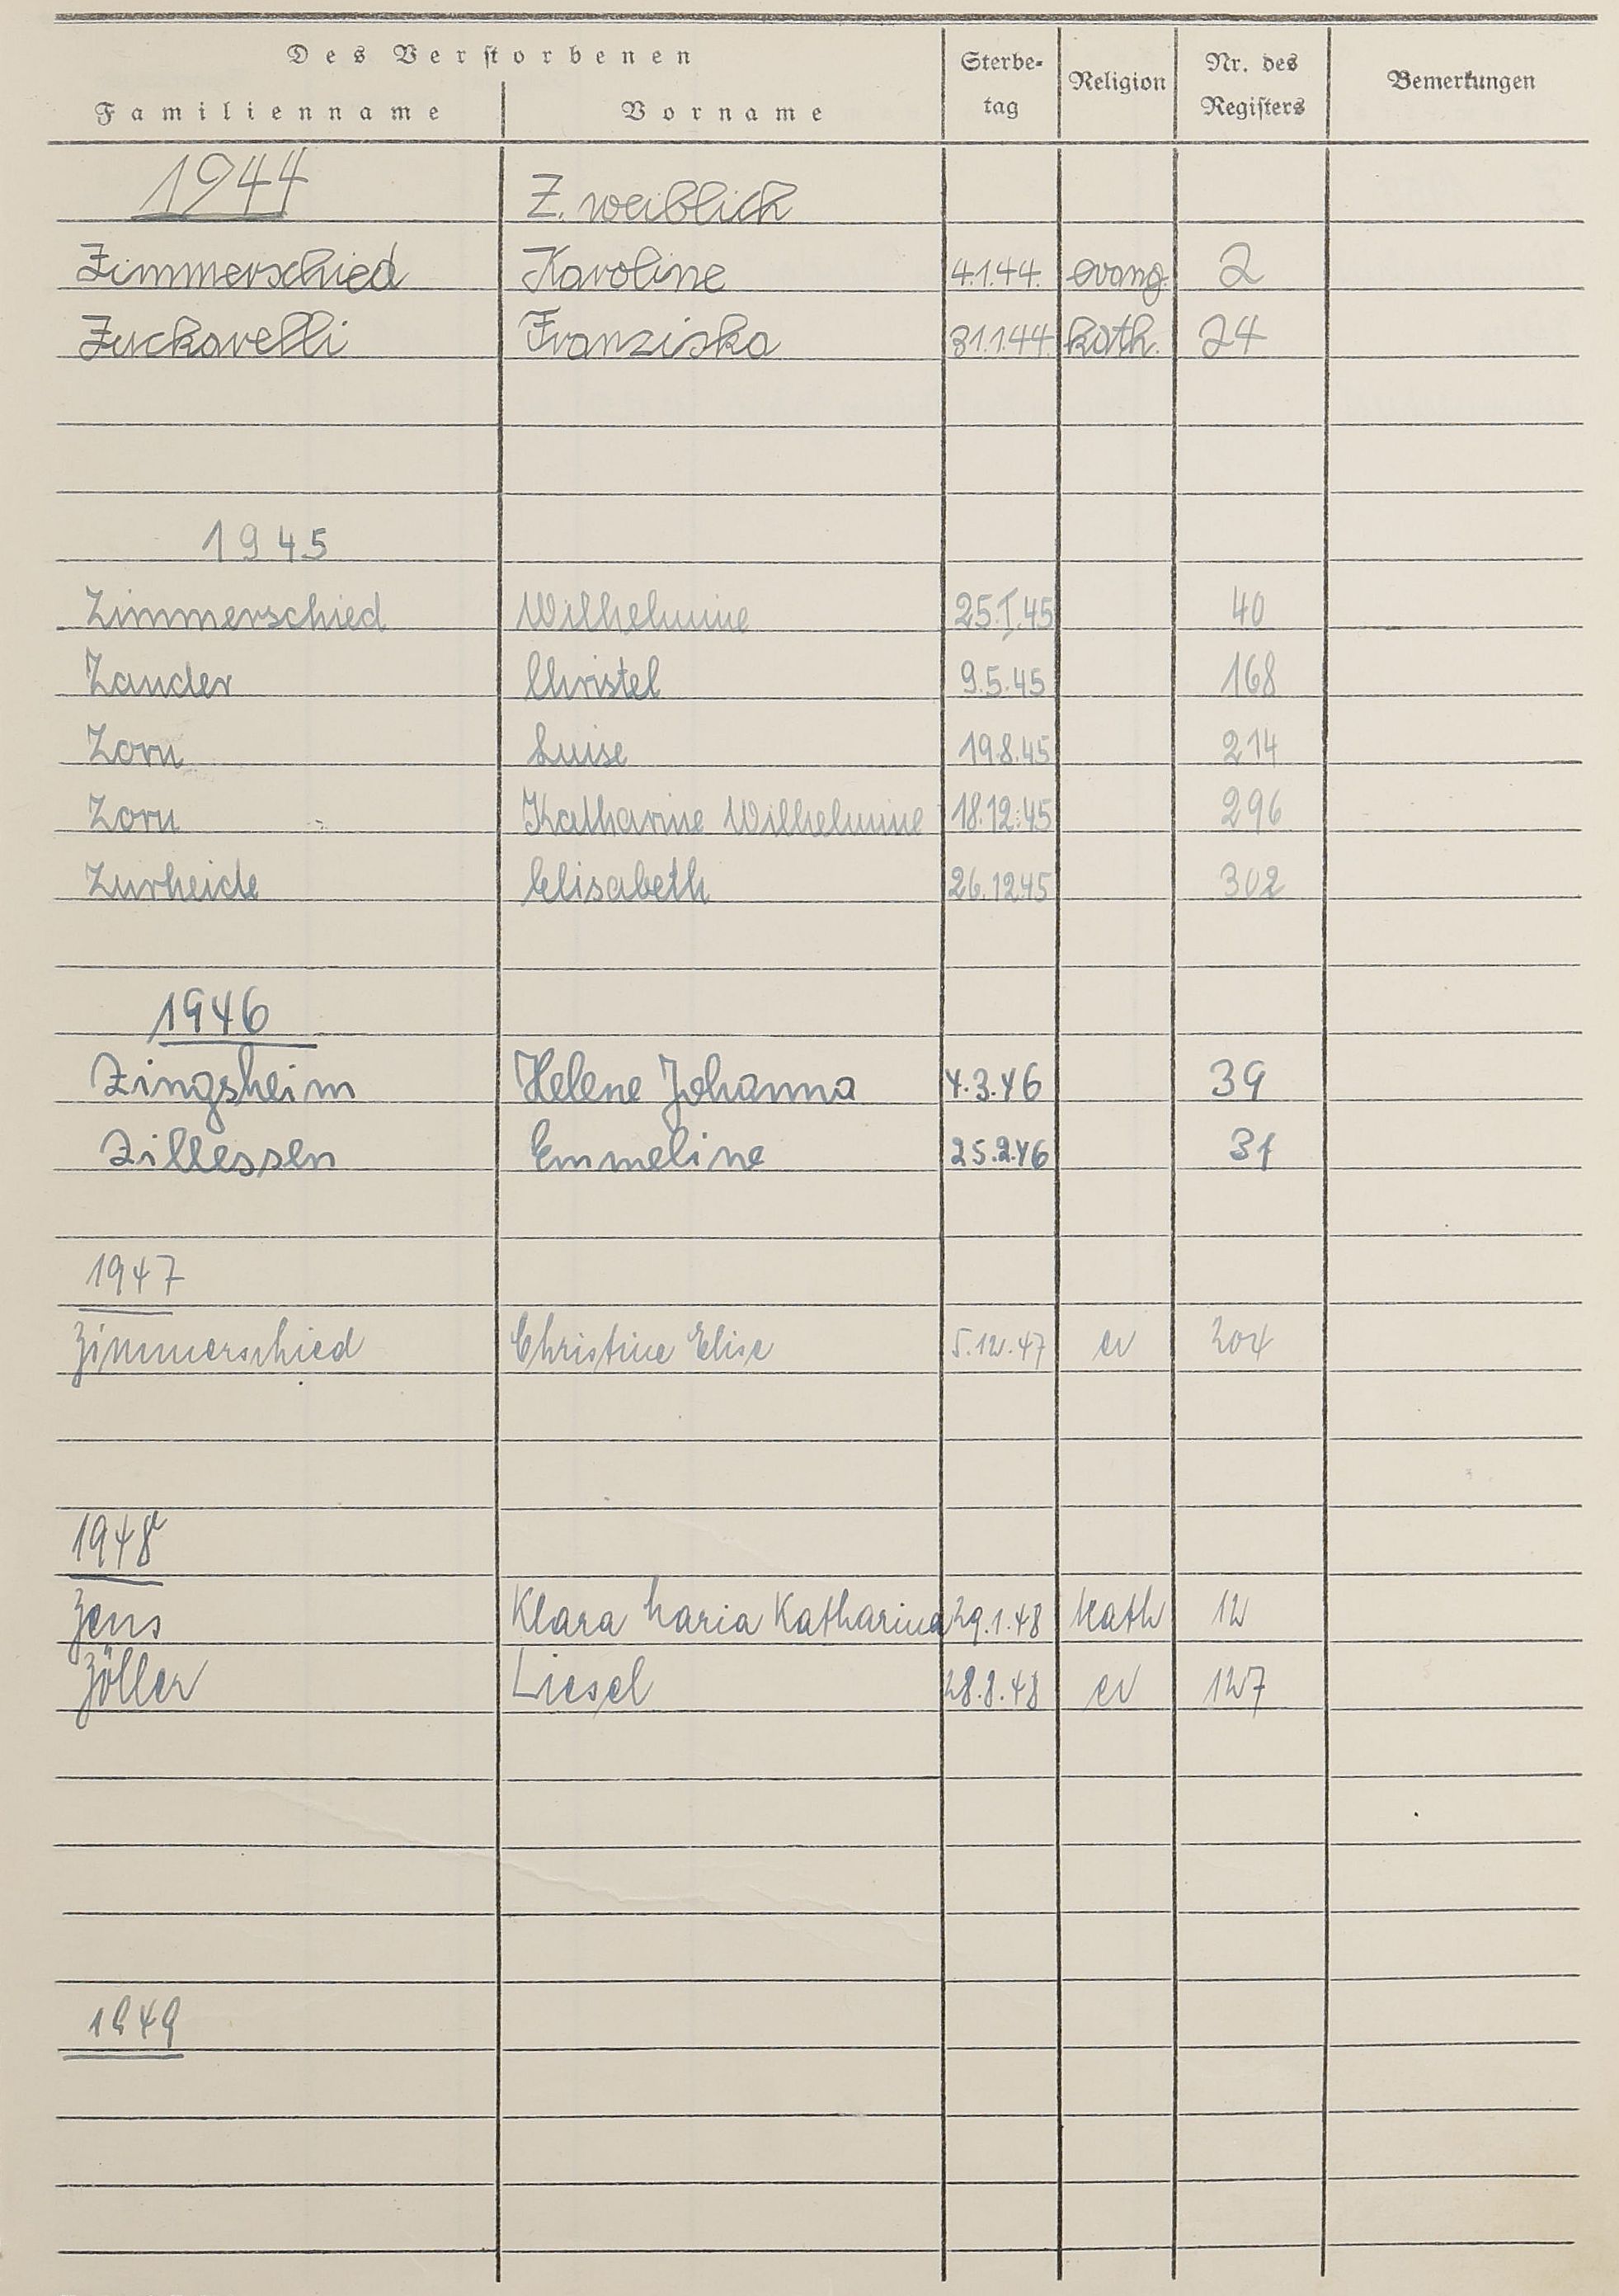 Des Verstorbenen
Familienname Vorname Sterbe-tag Religion Nr. des Registers Bemerkungen
1944 Z. weiblich
Zimmerschied Karoline 4.1.44. evang. 2
Zuckarelli Franziska 31.1.44. kath. 24
1945
Zimmerschied Wilhelmine 25.I.45 40
Zander Christel 9.5.45 168
Zorn Luise 19.8.45 214
Zorn Katharine Wilhelmine 18.12.45 296
Zurheide Elisabeth 26.12.45 302
1946
Zingsheim Helene Johanna 4.3.46 39
Zillessen Emmeline 25.2.46 31
1947
Zimmerschied Christine Elise 5.12.47 ev 204
1948
Zens Klara Maria Katharina 29.1.48 kath 12
Zöller Liesel 28.8.48 ev 127
1949